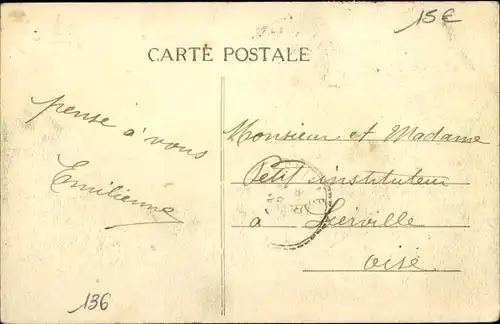 15€
CARTE POSTALE
pense à vous
Emilienne
Monsieur et Madame
Petit instituteur
à Lierville
oise
136